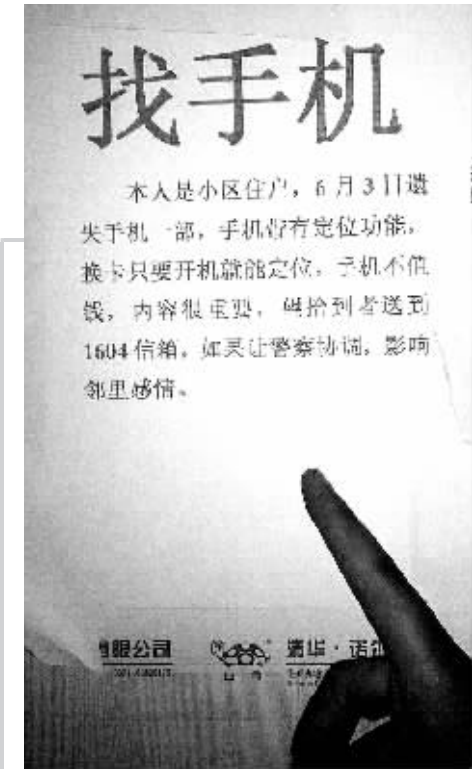 找手机
本人是小区住户，6月3日遗
失手机一部，手机带有定位功能，
换卡只要开机就能定位，手机不值
钱，内容很重要，望拾到者送到
1604信箱，如果让警察协调，影响
邻里感情。
限公司
清华·诺